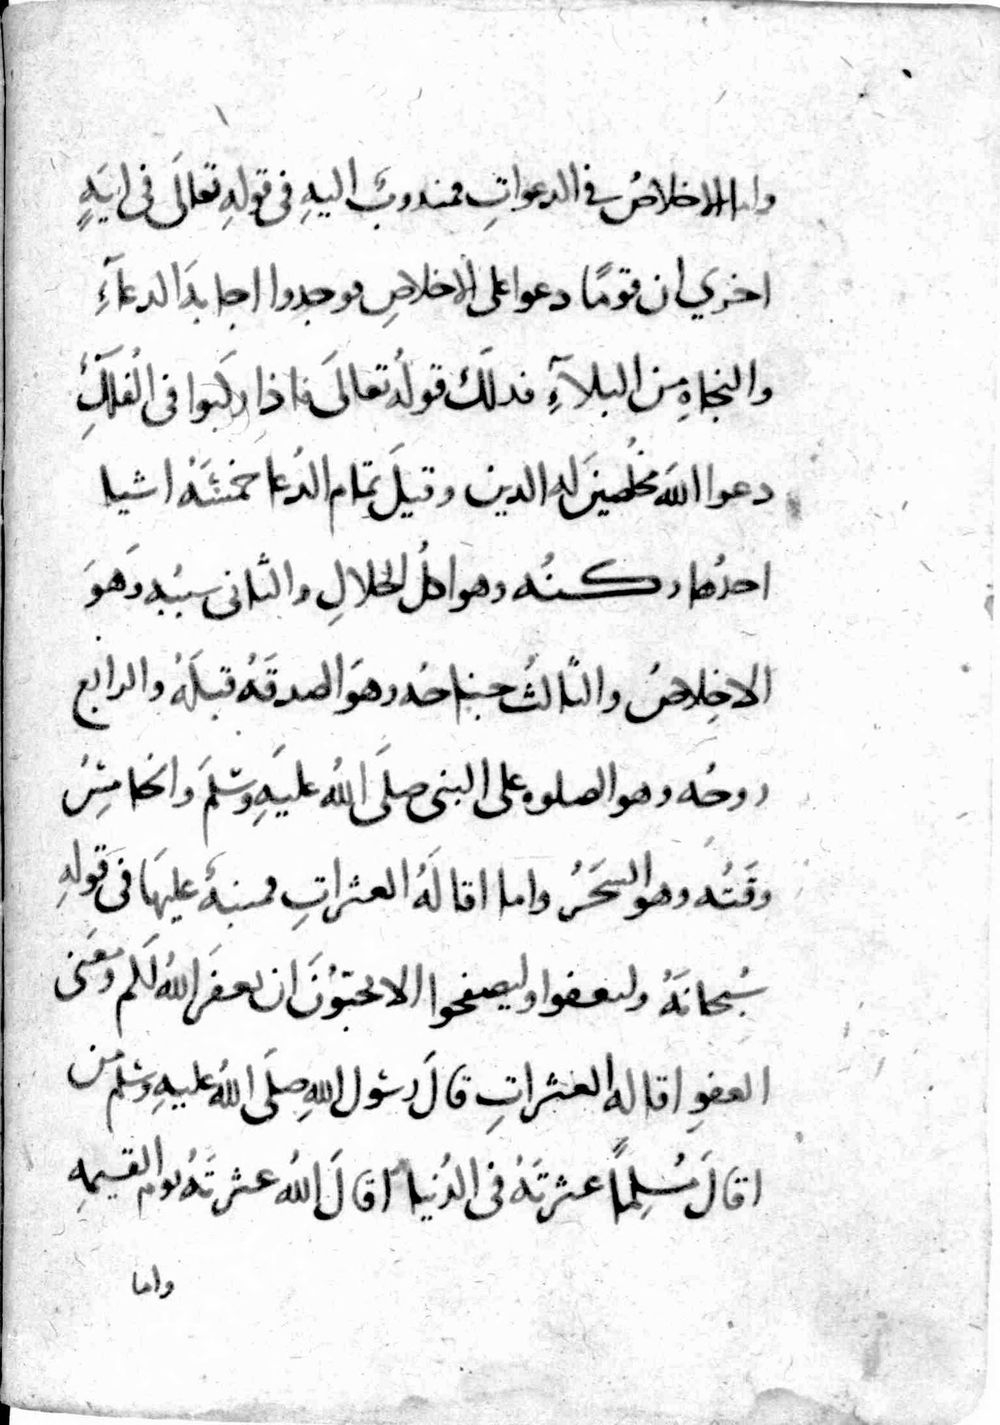 واما الاخلاصُ في الدعواتِ فمندوبٌ اليهِ في قولهِ تعالَى في ايَةٍ
اخري ان قومًا دعوا على الاخلاصِ فوجدوا اجابةَ الدعآءِ
والنجاهِ من البلآءِ فذلكَ قولُه تعالىَ فاذا ركبوا في الفُلكِ
دعوا اللهَ مخُلصينَ له الدين وقيلَ تمام الدُعا خمسَةُ اشيا
احدُها ركنُه وهو اكلُ الحلالِ والثاني سببُه وَهوَ
الاخِلاصُ والثالثُ جناحُه وهوَ الصدقَهُ قبلَهُ والرابع
روحُه وهو الصلوه على النبى صلَى اللهُ عليَهِ وسَلمَ والخامِسُ
وقَتُه وهو السَحَرُ واما اقالَهُ العثراتِ فمنبهٌ عليهَا في قولهِ
سُبحانَهُ وليعفوا وليصفحوا الا تحبّوُنَ ان يغفرَ اللهُ لَكم ومَعنى
العفوِ اقاله العثراتِ قالَ رسُول اللهِ صلَى اللهُ عليهِ وسَلم من
اقالَ مُسلِماً عثرتَهُ في الدُنيا اقالَ اللهُ عثرتَهُ يوم القيمه
واما